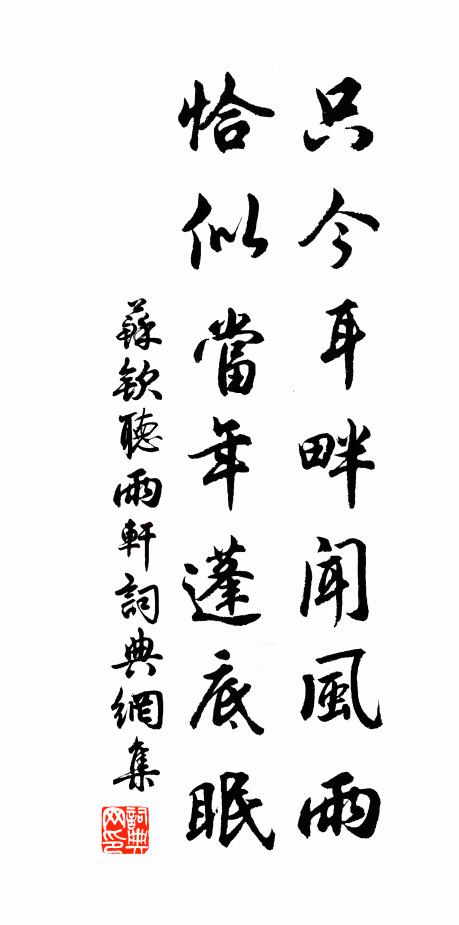 只今耳畔聞風雨
恰似當年蓬底眠
蘇欽聽雨軒詞典網集
詞典網印